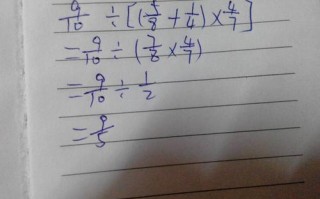 9/10 ÷ [(5/8 + 1/4) × 4/7]
= 9/10 ÷ (7/8 × 4/7)
= 9/10 ÷ 1/2
= 9/5